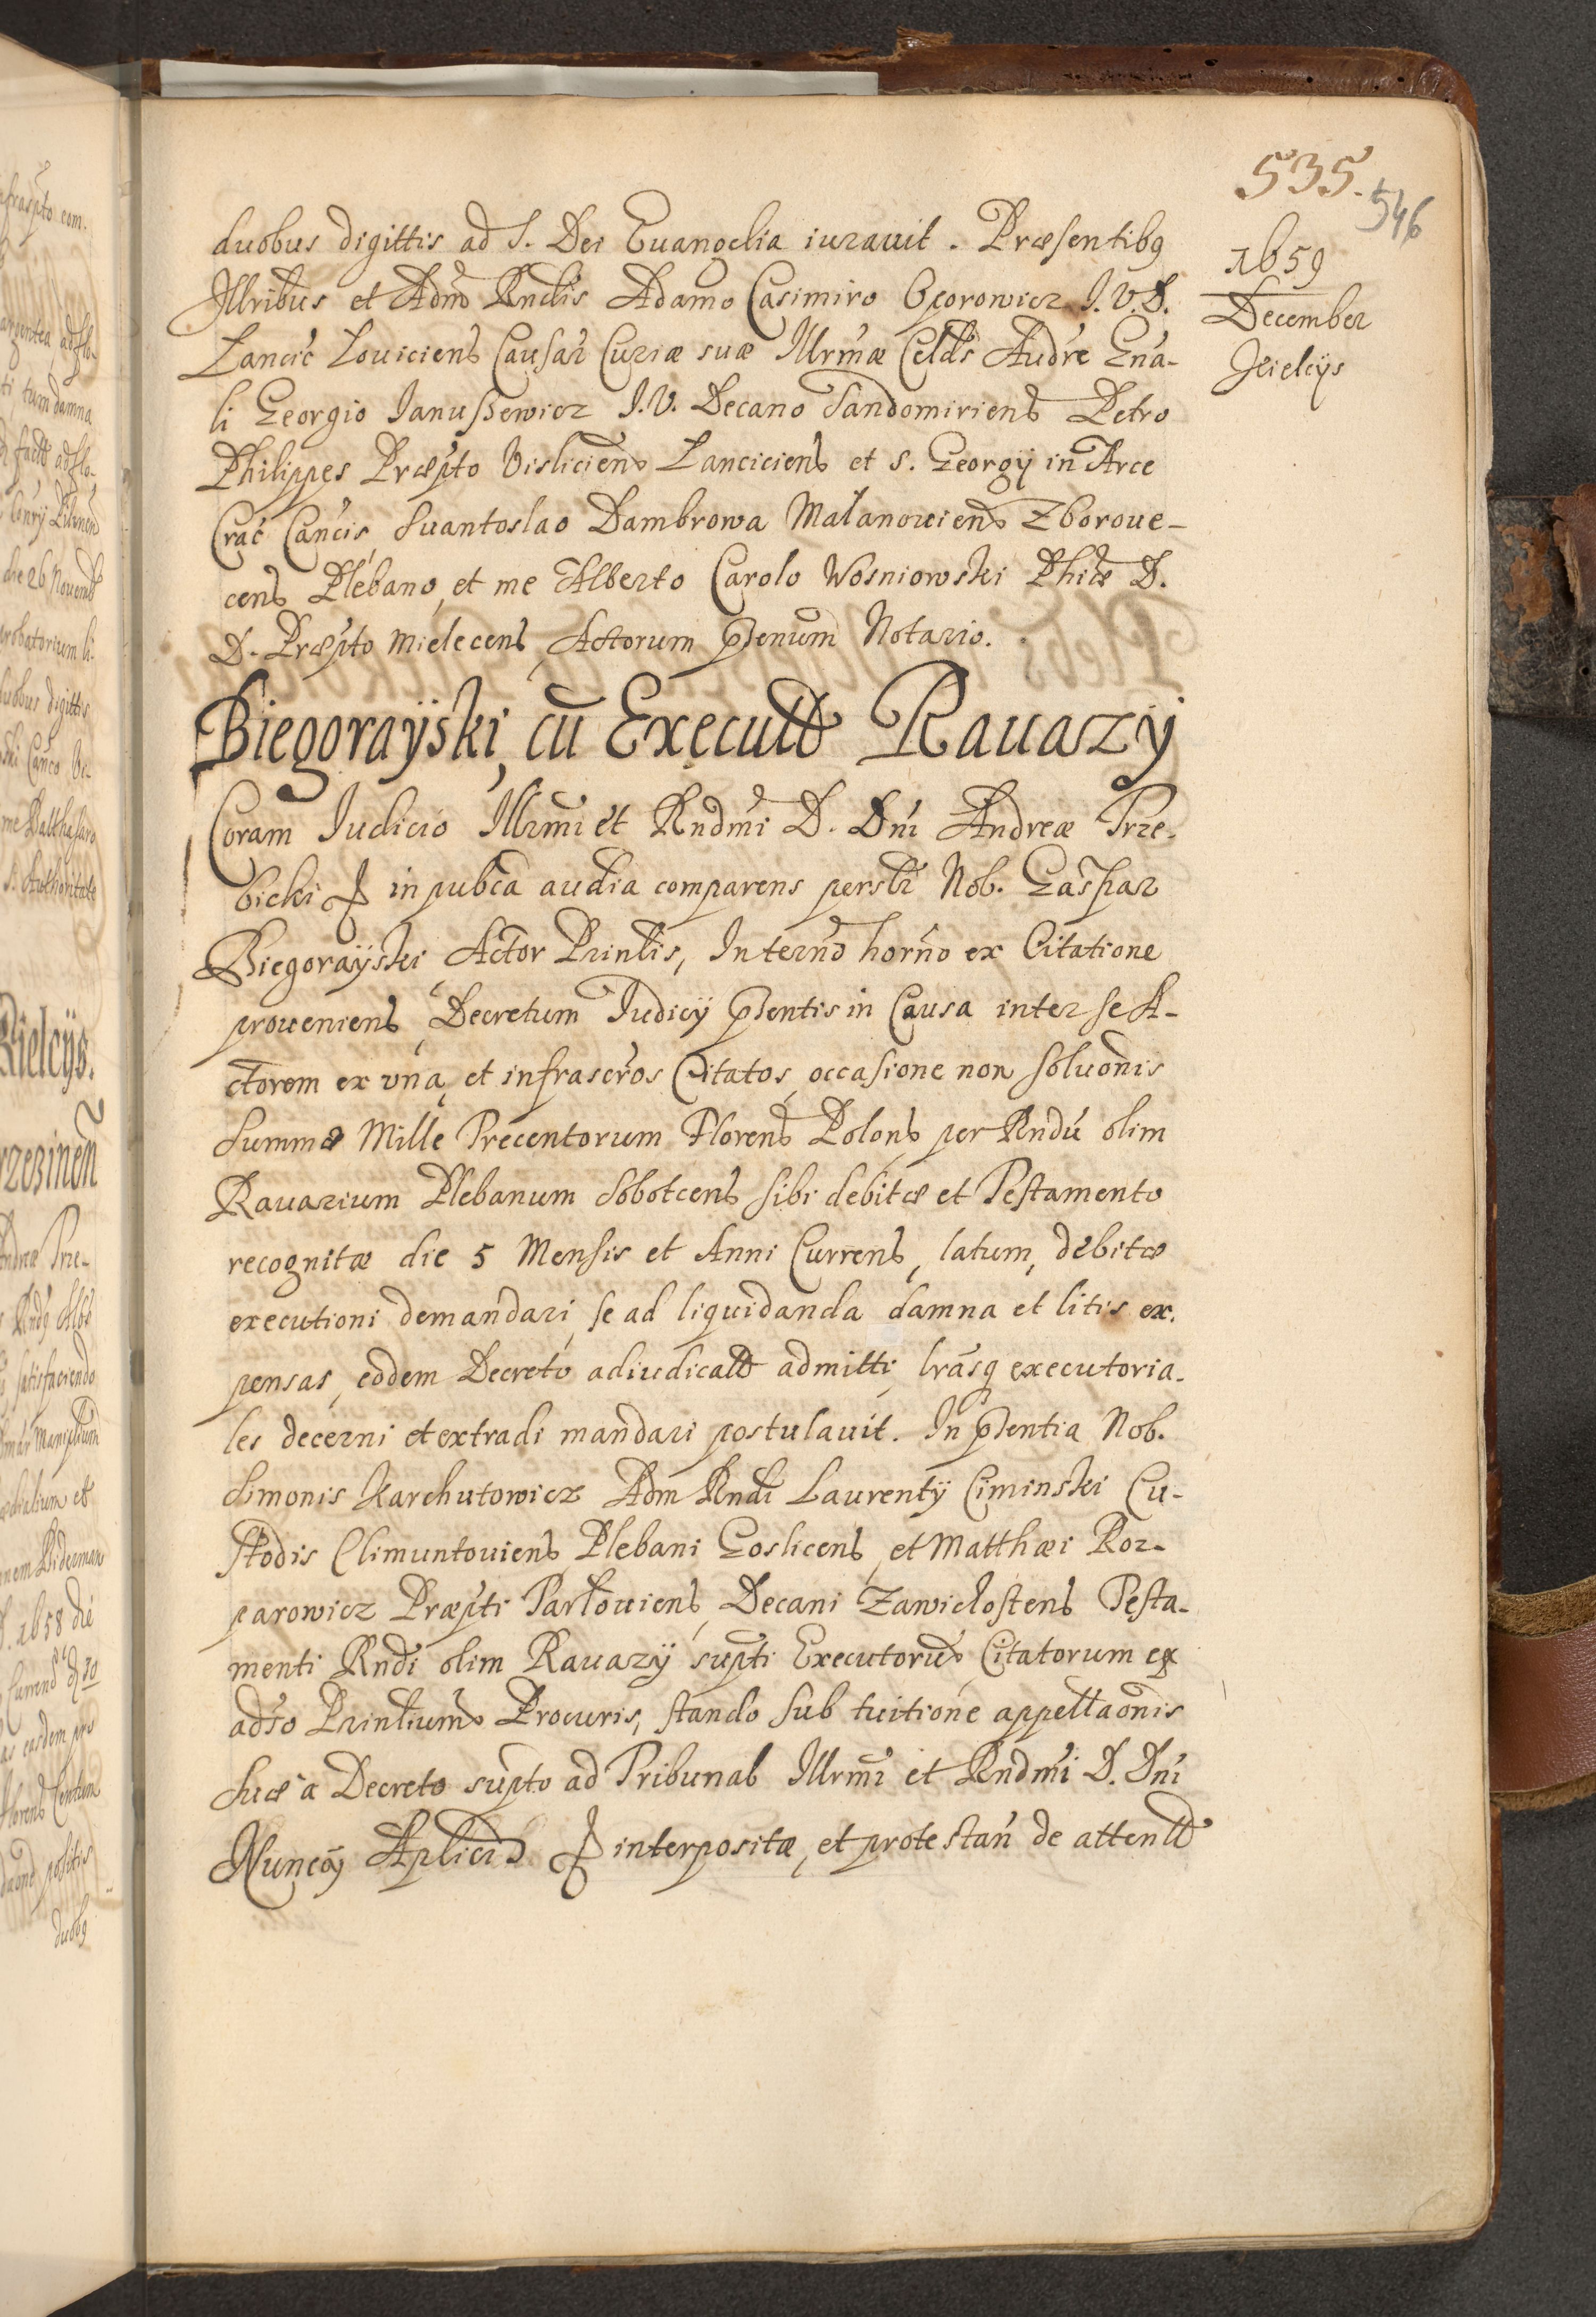 535.
546
1659
December
Kielcÿs
duobus digittis ad S. Dei Euangelia iurauit. Præsentibq
Illribus et Adm Rndis Adamo Casimiro Oporowicz I. V. D.
Lancic Louiciens Causar Curiæ suæ Illrmæ Celdis Audre Gna-
li Georgio Ianuszewicz I. V. Decano Sandomiriens Petro
Philippes Præpto Visliciens Lanciciens et S. Georgÿ in Arce
Crac Cancis Suantoslao Dambrowa Malanowiens Zboroue-
cens Plebano, et me Alberto Carolo Wosniowski Philæ D.
D. Præpto Mielecens Actorum pntium Notario.
Biegoraÿski, cu Execut Rauazÿ
Coram Iudicio Illrmi et Rndmi D. Dni Andreæ Trze-
bicki in pubca audia comparens persltr Nob. Gaspar
Biegoraÿski Actor Prinlis, In termo horno ex Citatione
proueniens, Decretum Iudicÿ pntis in Causa inter se A-
ctorem ex vna, et infrascros Citatos, occasione non soluonis
Summæ Mille Trecentorum Florens Polons per Rndu olim
Rauazium Plebanum Sobotcens sibi debitæ et Testamento
recognitæ die 5 Mensis et Anni Currens, latum, debitæ
executioni demandari, se ad liquidanda damna et litis ex-
pensas, eodem Decreto adiudicat admitti, lrasq executoria-
les decerni et extradi mandari postulauit. In pntia Nob.
Simonis Karchutowicz Adm Rndi Laurentÿ Ciminski Cu-
stodis Climuntouiens Plebani Goslicens, et Matthæi Roz-
parowicz Præpti Parłouiens, Decani Zawichostens Testa-
menti Rndi olim Rauazÿ supti Executorum Citatorum ex
adso Prinlium Procuris, stando sub tuitione appellaonis
suæ a Decreto supto ad Tribunal Illrmi et Rndmi D. Dni
Nuncÿ Aplici interpositæ, et protestan de attent